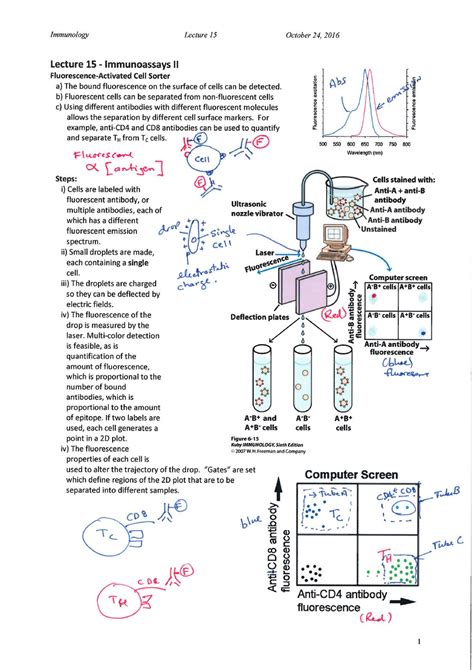 Immunology Lecture 15 October 24, 2016
Lecture 15 - Immunoassays II
Fluorescence-Activated Cell Sorter
a) The bound fluorescence on the surface of cells can be detected.
b) Fluorescent cells can be separated from non-fluorescent cells
c) Using different antibodies with different fluorescent molecules
allows the separation by different cell surface markers. For
example, anti-CD4 and CD8 antibodies can be used to quantify
and separate TH from TC cells.
Fluorescence
α [antigen]
Cell
F
F
Fluorescence excitation
Fluorescence emission
Abs
emission
500 550 600 650 700 750 800
Wavelength (nm)
Steps:
i) Cells are labeled with
fluorescent antibody, or
multiple antibodies, each of
which has a different
fluorescent emission
spectrum.
ii) Small droplets are made,
each containing a single
cell.
iii) The droplets are charged
so they can be deflected by
electric fields.
iv) The fluorescence of the
drop is measured by the
laser. Multi-color detection
is feasible, as is
quantification of the
amount of fluorescence,
which is proportional to the
number of bound
antibodies, which is
proportional to the amount
of epitope. If two labels are
used, each cell generates a
point in a 2D plot.
iv) The fluorescence
properties of each cell is
used to alter the trajectory of the drop. "Gates" are set
which define regions of the 2D plot that are to be
separated into different samples.
drop
single
cell
electrostatic
charge.
Cells stained with:
Anti-A + anti-B
antibody
Anti-A antibody
Anti-B antibody
Unstained
Ultrasonic
nozzle vibrator
Laser
Fluorescence
Deflection plates
(Red)
Computer screen
A-B+ cells A+B+ cells
A-B- cells A+B- cells
Anti-B antibody
fluorescence
Anti-A antibody
fluorescence
(blue)
A+B+ and
A+B- cells
A-B-
cells
A+B-
cells
Figure 6-15
Kuby IMMUNOLOGY, Sixth Edition
© 2007 W.H. Freeman and Company
Computer Screen
Tube A
TC
CD4+ CD8
Tube B
TH
Tube C
blue
Anti-CD8 antibody
fluorescence
Anti-CD4 antibody
fluorescence
(Red)
CD8
F
TC
F
TH
1